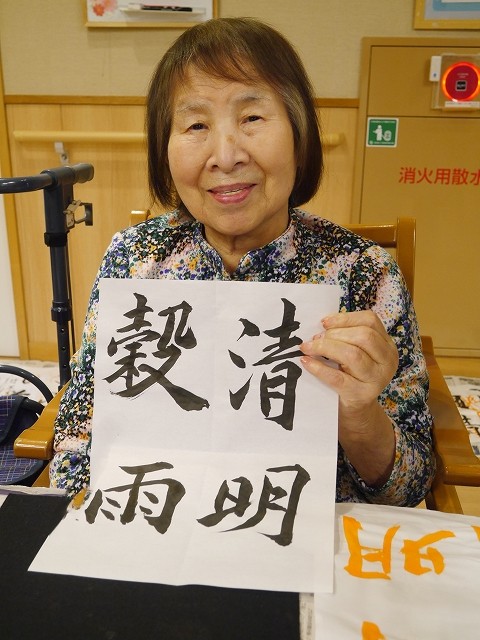 清明
穀雨
消火用散水
明